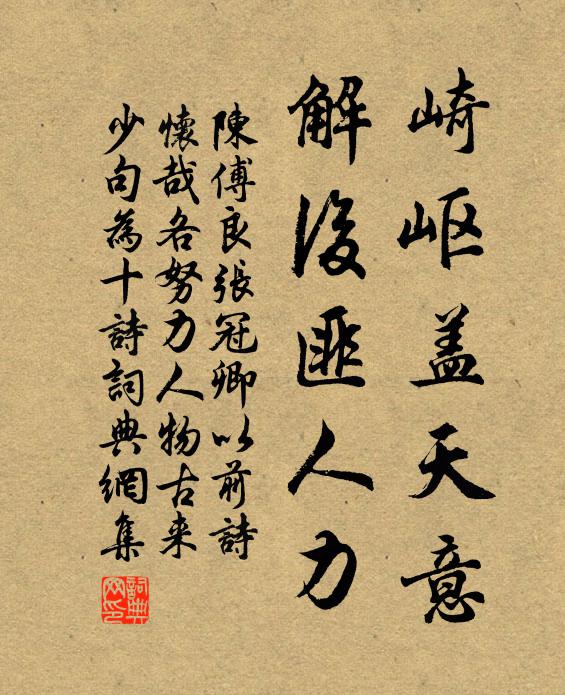 崎岖盖天意
解後匪人力
陳傅良張冠卿以前詩
懷哉各努力人物古来
少句為十詩詞典網集
詞典網印